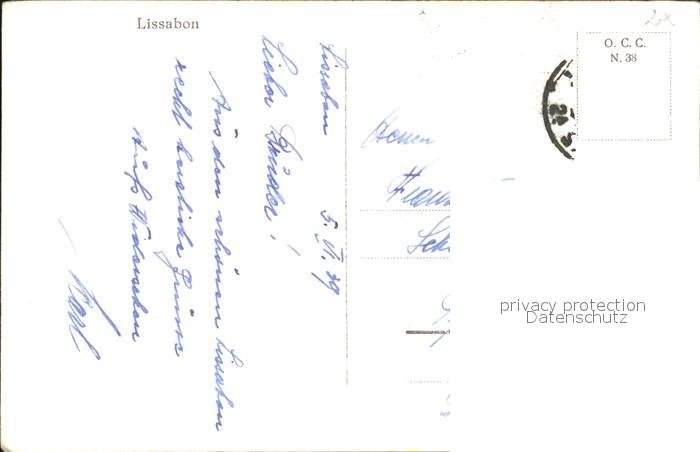 Lissabon
O. C. C.
N. 38
Lissabon 5. VI. 39
Lieber Bruder!
Aus dem schönen Lissabon
recht herzliche Grüsse
Aufs Wiedersehen
Karl
Herrn
24
privacy protection
Datenschutz